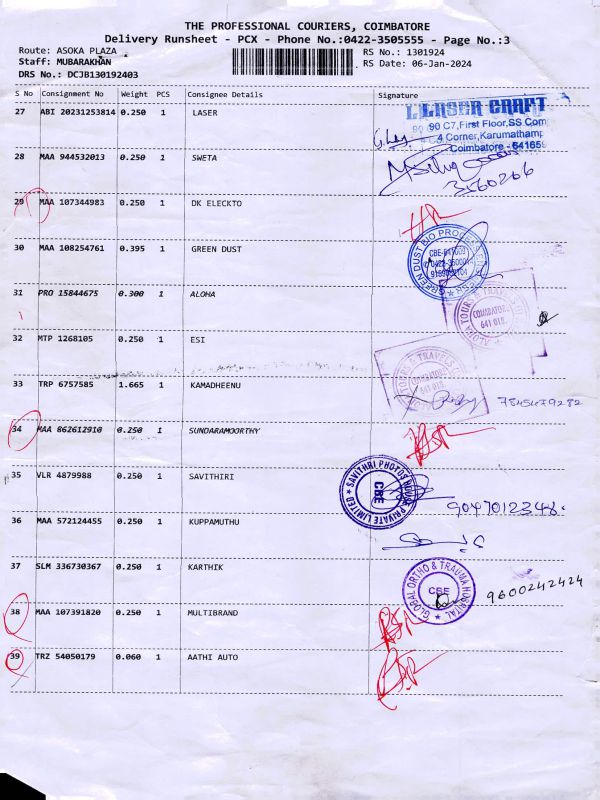 THE PROFESSIONAL COURIERS, COIMBATORE
Delivery Runsheet - PCX - Phone No.:0422-3505555 - Page No.:3
Route: ASOKA PLAZA
RS No.: 1301924
Staff: MUBARAKHAN
RS Date: 06-Jan-2024
DRS No.: DCJB130192403
S No Consignment No Weight PCS Consignee Details Signature
27 ABI 20231253814 0.250 1 LASER
LASER CRAFT
90 C7,First Floor,SS Com
4 Corner,Karumathamp
Coimbatore - 641659
28 MAA 944532013 0.250 1 SWETA
29 MAA 107344983 0.250 1 DK ELECKTO
30 MAA 108254761 0.395 1 GREEN DUST
GREEN DUST BIO PROCESS
31 PRO 15844675 0.300 1 ALOHA
ALOHA TOURS & TRAVELS
COIMBATORE
641 018
32 MTP 1268105 0.250 1 ESI
TOURS & TRAVELS
COIMBATORE
641 018
33 TRP 6757585 1.665 1 KAMADHEENU
34 MAA 862612910 0.250 1 SUNDARAMOORTHY
35 VLR 4879988 0.250 1 SAVITHIRI
SAVITHRI PHOTOS HOUSE PRIVATE LIMITED
CBE
9047012348.
36 MAA 572124455 0.250 1 KUPPAMUTHU
37 SLM 336730367 0.250 1 KARTHIK
GLOBAL ORTHO & TRAUMA HOSPITAL
CBE
9600242424
38 MAA 107391820 0.250 1 MULTIBRAND
39 TRZ 54050179 0.060 1 AATHI AUTO